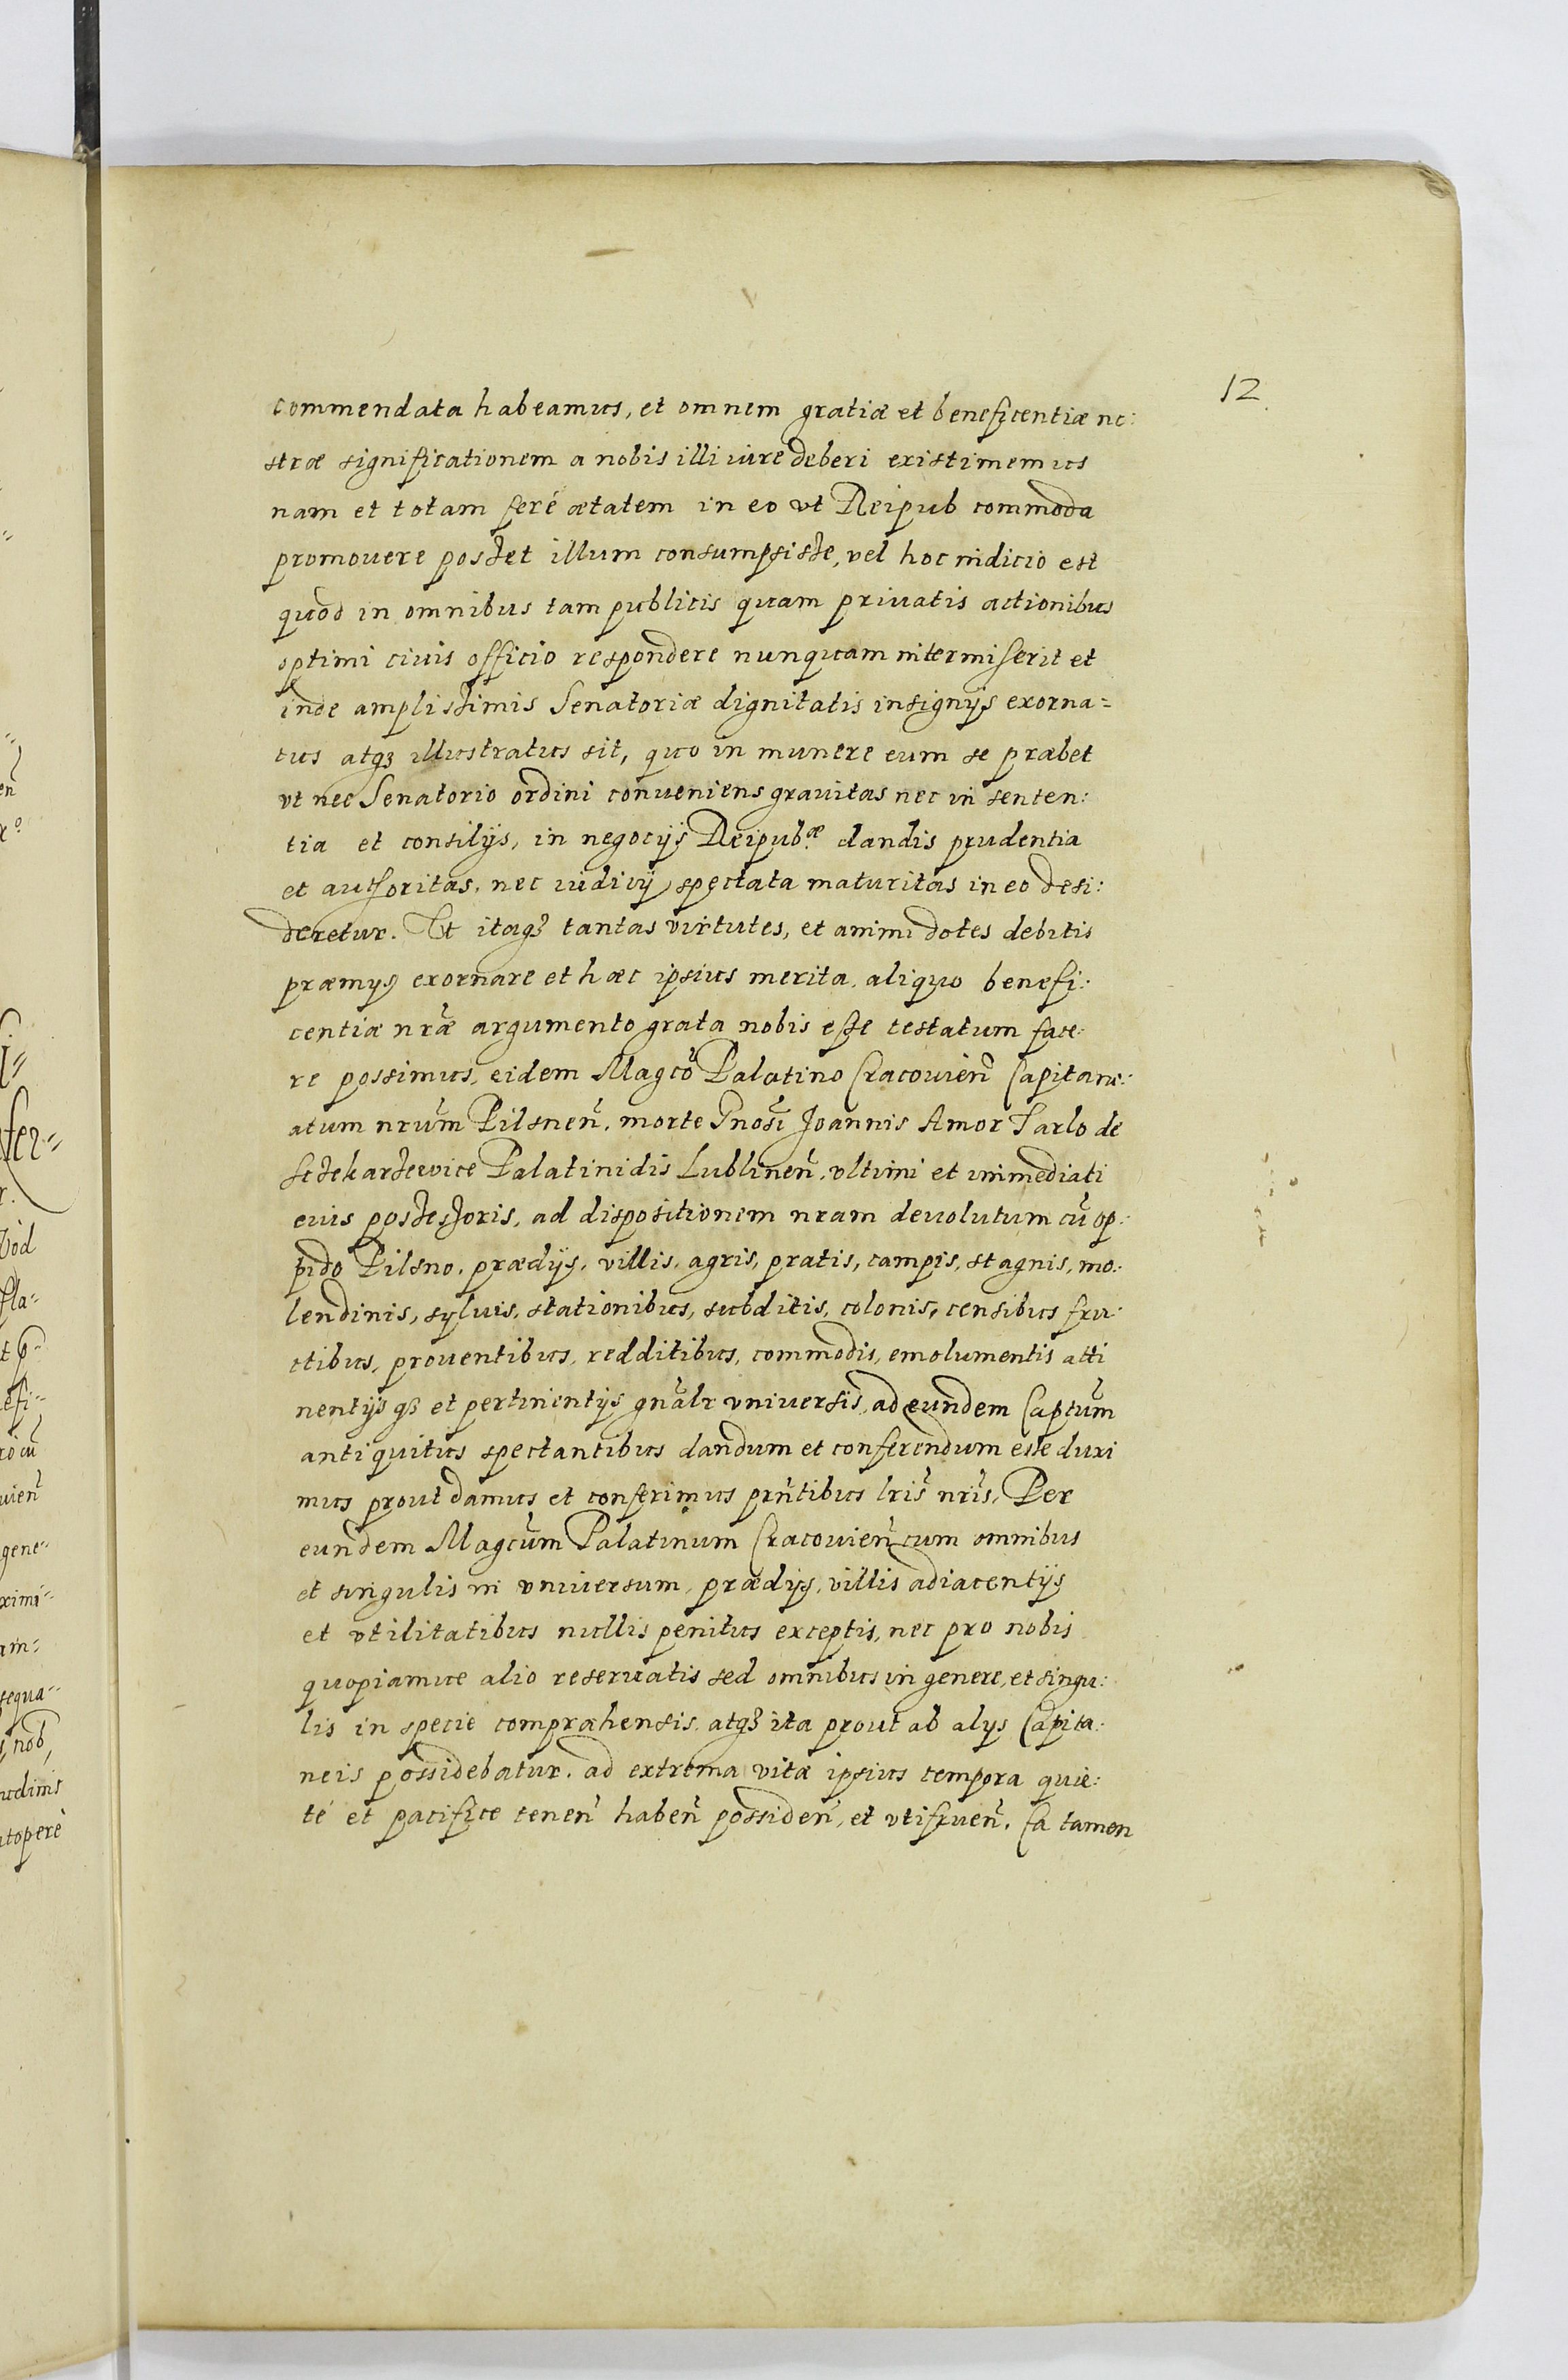 12
commendata habeamus, et omnem gratiæ et beneficentiæ no:
stræ significationem a nobis illi iure deberi existimemus
nam et totam feré ætatem in eo vt Reipub commoda
promouere posset illum consumpsisse, vel hoc indicio est
quod in omnibus tam publicis quam priuatis actionibus
optimi ciuis officio respondere nunquam intermiserit et
inde amplissimis Senatoriæ dignitatis insignijs exorna=
tus atq3 illustratus sit, quo in munere eum se præbet
vt nec Senatorio ordini conueniens grauitas nec in senten:
tia et consilijs, in negocijs Reipub.æ dandis prudentia
et authoritas, nec iudicij spectata maturitas in eo desi:
deretur. Vt itaq3 tantas virtutes, et animi dotes debitis
præmijs exornare et hæc ipsius merita, aliquo benefi:
centiæ nr̃æ argumento grata nobis esse testatum face:
re possimus, eidem Magc̃o Palatino Cracouien̄ Capitane:
atum nrũm Pilsnen̄, morte Gnosi Joannis Amor Tarlo de
Sczekarzewice Palatinidis Lublinen̄, vltimi et immediati
euis possessoris, ad dispositionem nram deuolutum cū op:
pido Pilsno, prædijs, villis, agris, pratis, campis, stagnis, mo:
lendinis, syluis, stationibus, subditis, colonis, censibus fru:
ctibus, prouentibus, redditibus, commodis, emolumentis atti
nentijs q3 et pertinentijs gnãlr vniuersis, ad eundem Captũm
antiquitus spectantibus dandum et conferendum esse duxi
mus prout damus et conferimus prñtibus lrĩs nrĩs. Per
eundem Magcũm Palatinum Cracouien̄ cum omnibus
et singulis in vniuersum, prædijs, villis adiacentijs
et vtilitatibus nullis penitus exceptis, nec pro nobis
quopiamue alio reseruatis sed omnibus in genere, et singu:
lis in specie compræhensis, atq3 ita prout ab alijs Capita:
neis possidebatur, ad extrema vitæ ipsius tempora quie:
té et pacifice tenen̄ haben̄ possiden̄, et vtifruen̄. Ea tamen